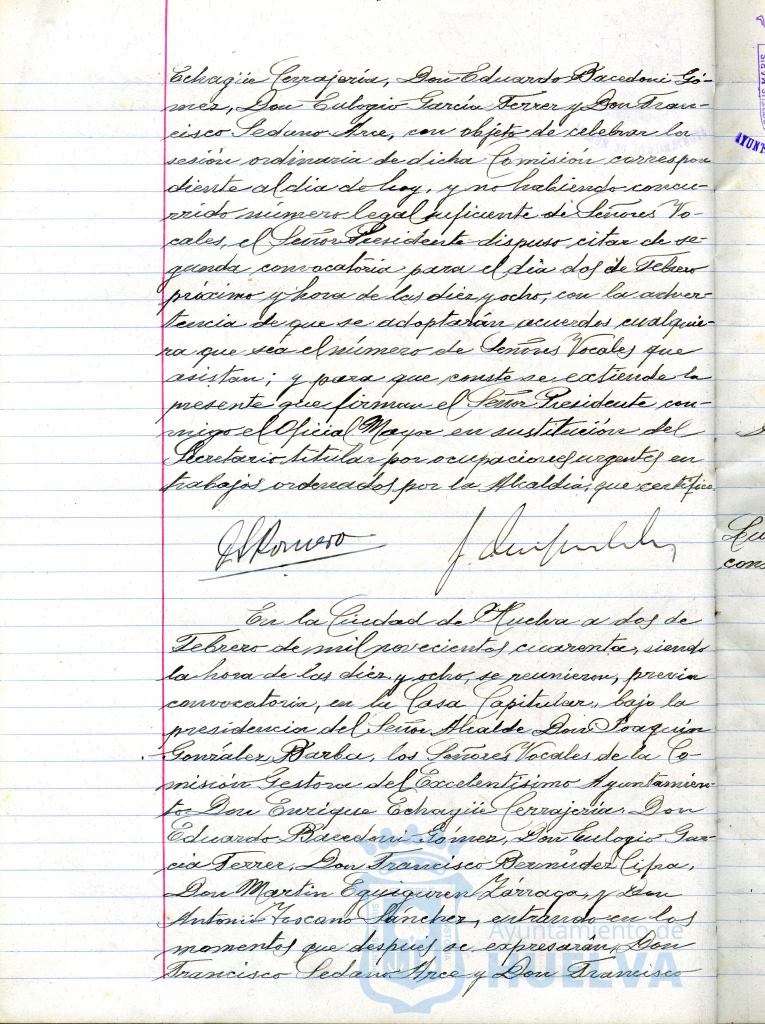 Echagüe Cerrajería, Don Eduardo Bacedoni Gó-
mez, Don Eulogio García Ferrer y Don Fran-
cisco Sedano Arce, con objeto de celebrar la
sesión ordinaria de dicha Comisión correspon
diente al dia de hoy, y no habiendo concu-
rrido número legal suficiente de Señores Vo-
cales, el Señor Presidente dispuso citar de se-
gunda convocatoria para el día dos de Febrero
próximo y hora de las diez y ocho, con la adver-
tencia de que se adoptarán acuerdos cualquie-
ra que sea el número de Señores Vocales que
asistan; y para que conste se extiende la
presente que firman el Señor Presidente con-
migo el Oficial Mayor en sustitución del
Secretario titular por ocupaciones urgentes en
trabajos ordenados por la Alcaldía, que certifico.
Romero
En la Ciudad de Huelva a dos de
Febrero de mil novecientos cuarenta, siendo
la hora de las diez y ocho, se reunieron, previa
convocatoria, en la Casa Capitular, bajo la
presidencia del Señor Alcalde Don Joaquín
González Barba, los Señores Vocales de la Co-
misión Gestora del Excelentísimo Ayuntamien-
to Don Enrique Echagüe Cerrajería, Don
Eduardo Bacedoni Gómez, Don Eulogio Gar-
cía Ferrer, Don Francisco Bermúdez Cifra,
Don Martín Eguiguren Zarraga, y Don
Antonio Toscano Sánchez, entrando en los
momentos que después se expresarán, Don
Francisco Sedano Arce y Don Francisco
Ayuntamiento de
HUELVA
AYUNT
cons